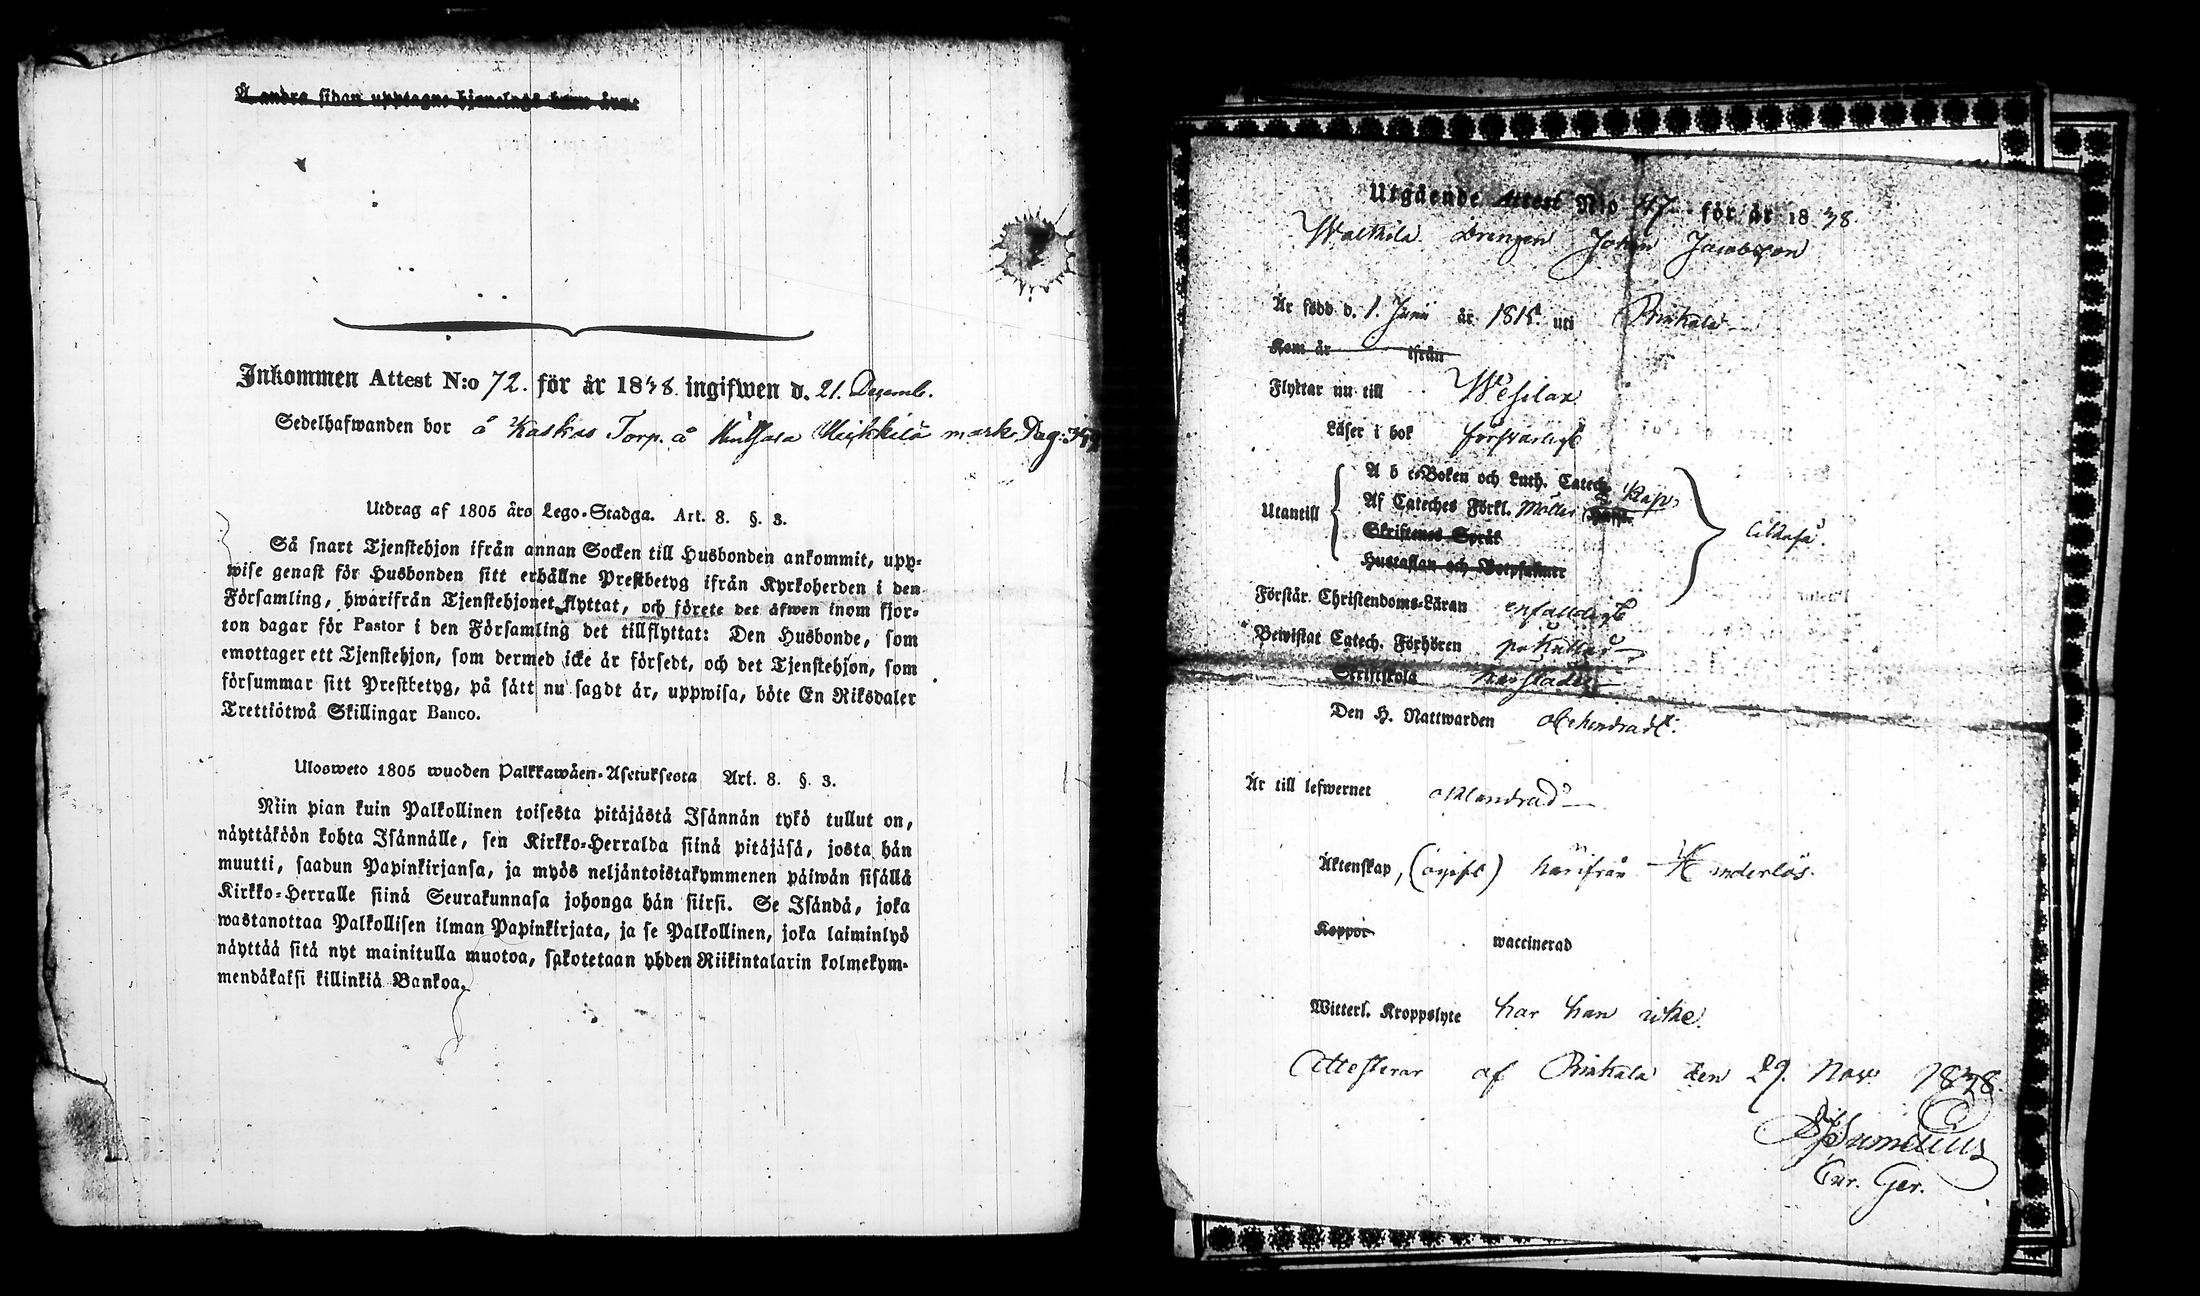 Å andra sidan upptagne hjonelags
Inkommen Attest N:o 72. för år 1838 ingifwen d. 21. Decemb.
Sedelhafwanden bor å Kaskas Torp. å Mikkilä mark. Pag:
Utdrag af 1805 års Lego-Stadga. Art. 8. §. 3.
Så snart Tjenstehjon ifrån annan Socken till Husbonden ankommit, upp-
wise genast för Husbonden sitt erhållne Prestbetyg ifrån Kyrkoherden i den
Församling, hwarifrån Tjenstehjonet flyttat, och förete det äfwen inom fjor-
ton dagar för Pastor i den Församling det tillflyttat: Den Husbonde, som
emottager ett Tjenstehjon, som dermed icke är försedt, och det Tjenstehjon, som
försummar sitt Prestbetyg, på sätt nu sagdt är, uppwisa, böte En Riksdaler
Trettiotwå Skillingar Banco.
Ulosweto 1805 wuoden Palkkawäen-Asetuksesta Art. 8. §. 3.
Niin pian kuin Palkollinen toisesta pitäjästä Isännän tykö tullut on,
näyttäköön kohta Isännälle, sen Kirkko-Herralda siinä pitäjäsä, josta hän
muutti, saadun Papinkirjansa, ja myös neljäntoistakymmenen päiwän sisällä
Kirkko-Herralle siinä Seurakunnasa johonga hän siirsi. Se Isändä, joka
wastanottaa Palkollisen ilman Papinkirjata, ja se Palkollinen, joka laiminlyö
näyttää sitä nyt mainitulla muotoa, sakotetaan yhden Riikintalarin kolmekym-
mendäkaksi killinkiä Bankoa.
Utgående Attest N:o 47 för år 1838
Drengen Johan Jacobsson
Är född d. 1. Junii år 1815 uti Pirkala
Kom år ifrån
Flyttar nu till Wesilax
Läser i bok försvarligt
Utantill
A b c-Boken och Luth. Catech.
Af Cateches Förkl. Möllers
Skriftenes Språk
Hustaflan och Botpsalmer
Förstår Christendoms-Läran enfaldigt
Bewistat Catech. Förhören
Skriftskola
Den H. Nattwarden oklandradt.
Är till lefwernet oklandrad
Äktenskap, (ogift) härifrån Hinderlös.
Koppor waccinerad
Witterl. Kroppslyte har han icke.
Attesterar af Pirkala den 29. Nov: 1838.
Cur. Ger.